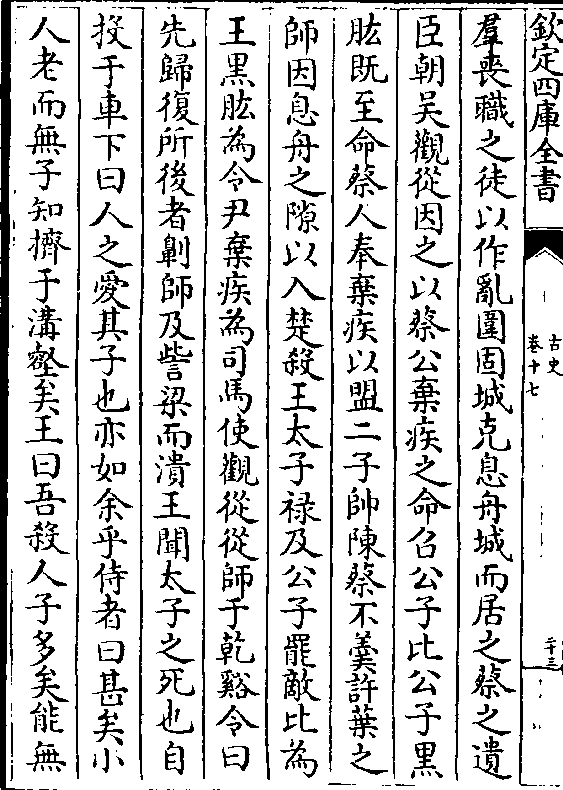 欽定四庫全書
古史
卷十七
二十三
羣喪職之徒以作亂圍固城克息舟城而居之蔡之遺
臣朝吴觀從因之以蔡公棄疾之命召公子比公子黑
肱既至命蔡人奉棄疾以盟二子帥陳蔡不羹許葉之
師因息舟之隙以入楚殺王太子禄及公子罷敵比為
王黑肱為令尹棄疾為司馬使觀從從師于乾谿令曰
先歸復所後者劓師及訾梁而潰王聞太子之死也自
投于車下曰人之愛其子也亦如余乎侍者曰甚矣小
人老而無子知擠于溝壑矣王曰吾殺人子多矣能無